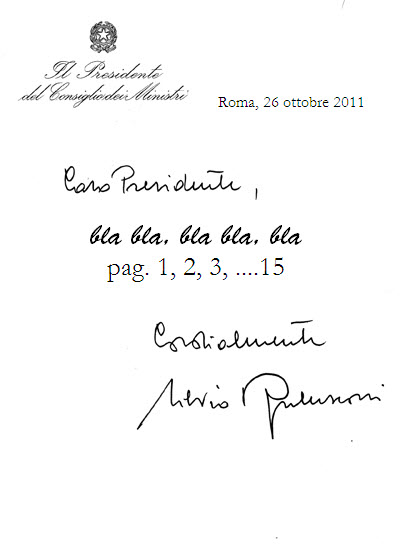 Il Presidente
del Consiglio dei Ministri
Roma, 26 ottobre 2011
Caro Presidente,
bla bla, bla bla, bla
pag. 1, 2, 3, ....15
Cordialmente
Silvio Berlusconi